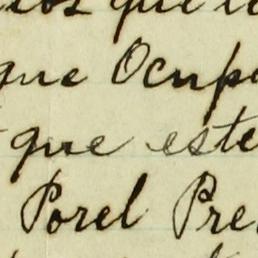 que
que Ocupa
que este
Porel Pre